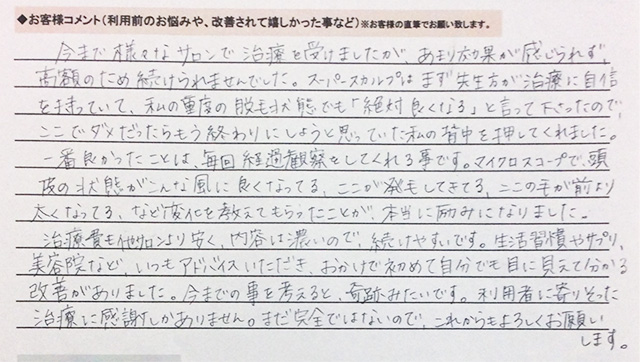 ◆お客様コメント(利用前のお悩みや、改善されて嬉しかった事など)※お客様の直筆でお願い致します。
今まで様々なサロンで治療を受けましたが、あまり効果が感じられず、
高額のため続けられませんでした。スーパースカルプはまず先生方が治療に自信
を持っていて、私の重度の脱毛状態でも「絶対良くなる」と言って下さったので、
ここでダメだったらもう終わりにしようと思っていた私の背中を押してくれました。
一番良かったことは、毎回経過観察をしてくれる事です。マイクロスコープで、頭
皮の状態がこんな風に良くなってる、ここが発毛してきてる、ここの毛が前より
太くなってる、など変化を教えてもらったことが、本当に励みになりました。
治療費も他サロンより安く、内容は濃いので、続けやすいです。生活習慣やサプリ、
美容院など、いつもアドバイスいただき、おかげで初めて自分でも目に見えて分かる
改善がありました。今までの事を考えると、奇跡みたいです。利用者に寄りそった
治療に感謝しかありません。まだ完全ではないので、これからもよろしくお願い
します。